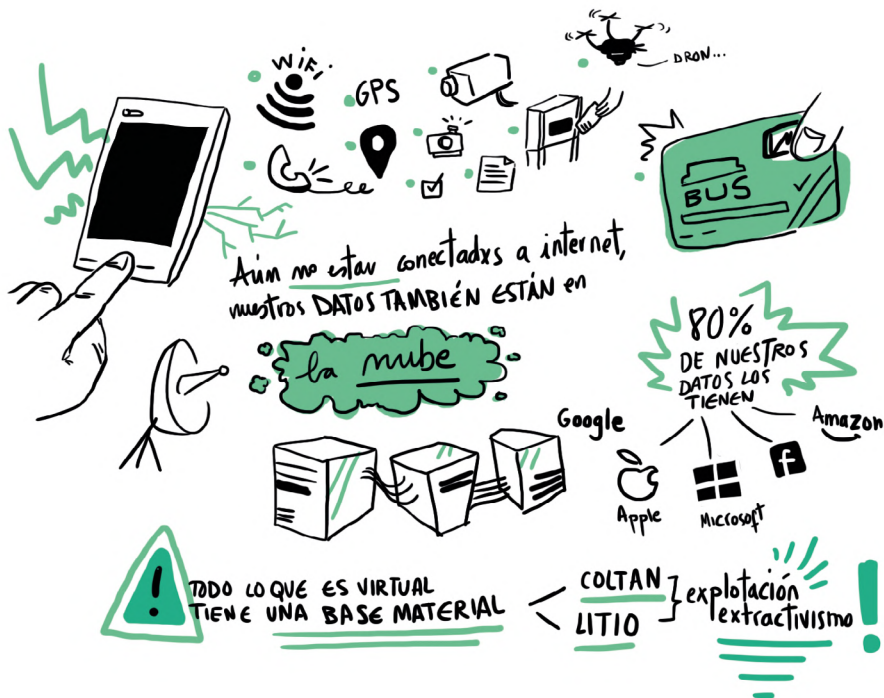 WiFi
GPS
DRON...
BUS
Aún no estar conectadxs a internet,
nuestros DATOS TAMBIÉN ESTÁN en
la nube
80%
DE NUESTROS
DATOS LOS
TIENEN
Google
Amazon
Apple
Microsoft
f
!
TODO LO QUE ES VIRTUAL
TIENE UNA BASE MATERIAL
COLTAN
LITIO
explotación
extractivismo
!